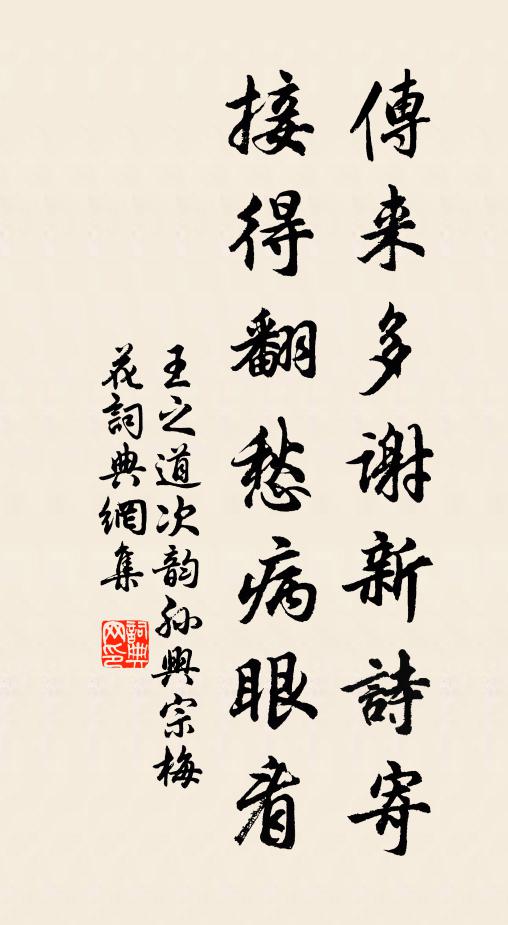 傳来多謝新詩寄
接得翻愁病眼看
王之道次韵孫興宗梅
花詞典網集
詞典网印